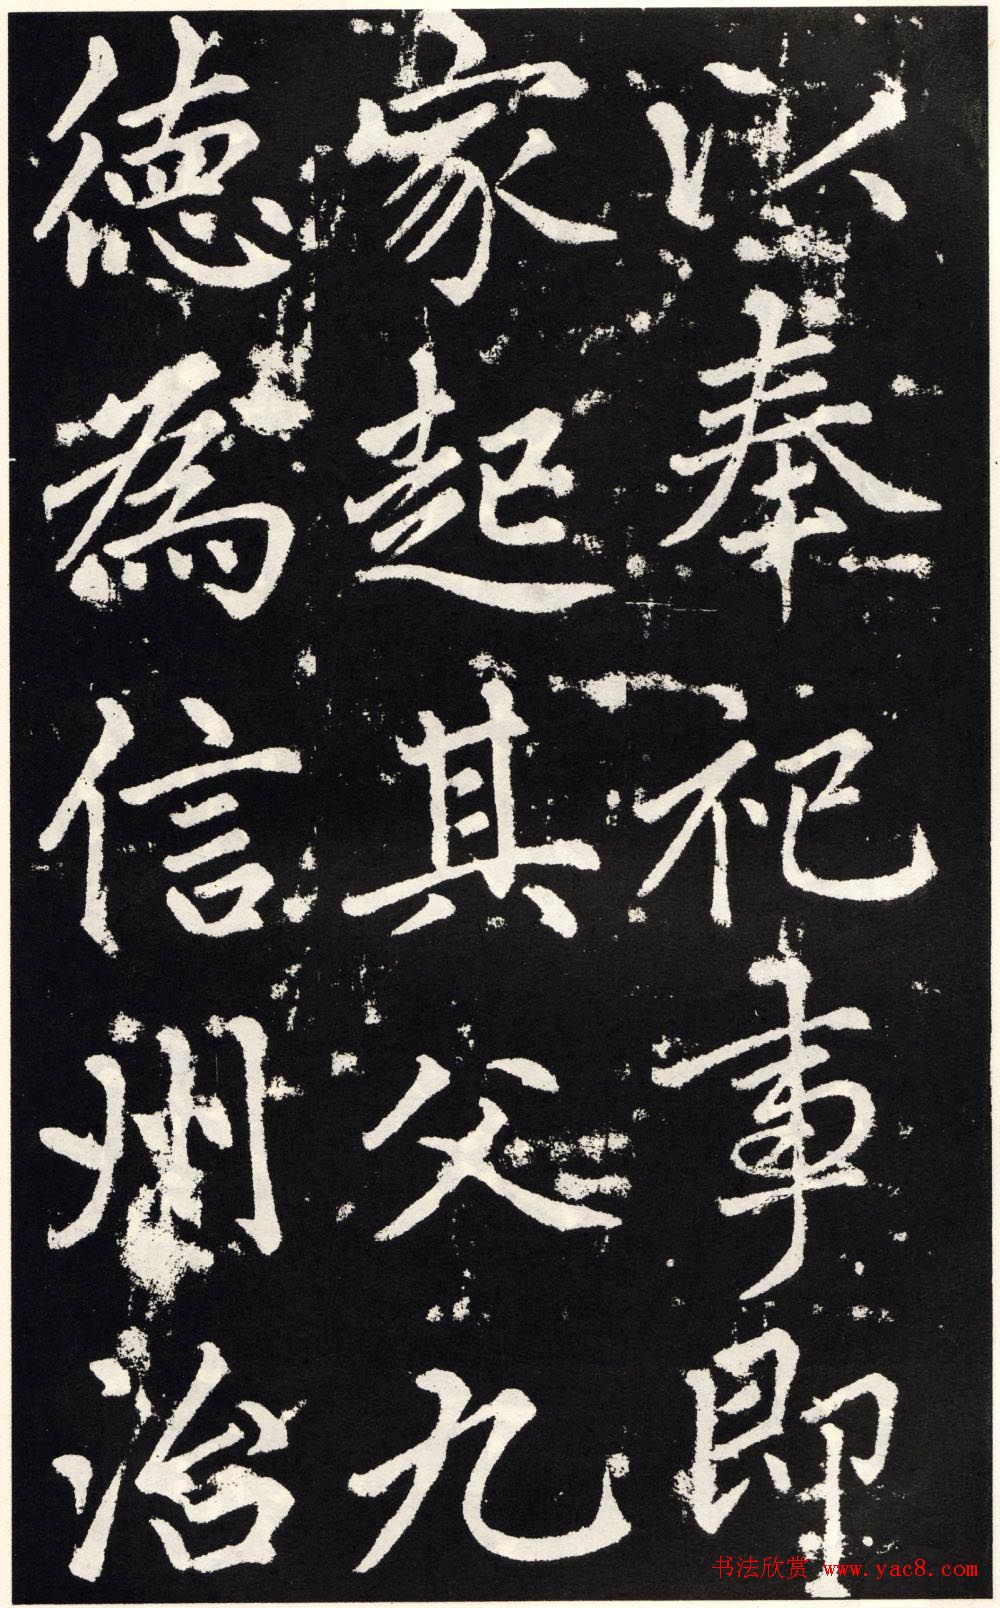 以奉祀事即
家起其父九
德為信州治
书法欣赏 www.yac8.com